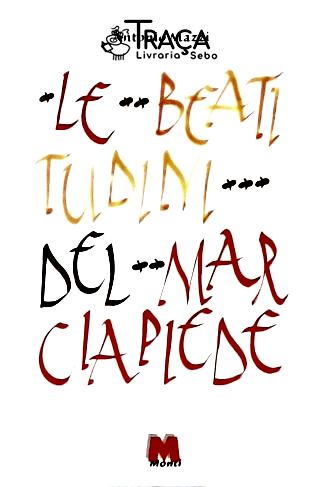 Antonio Mazzi
TRAÇA
Livraria Sebo
LE BEATI
TUDINI
DEL MAR
CIAPIEDE
M
Monti